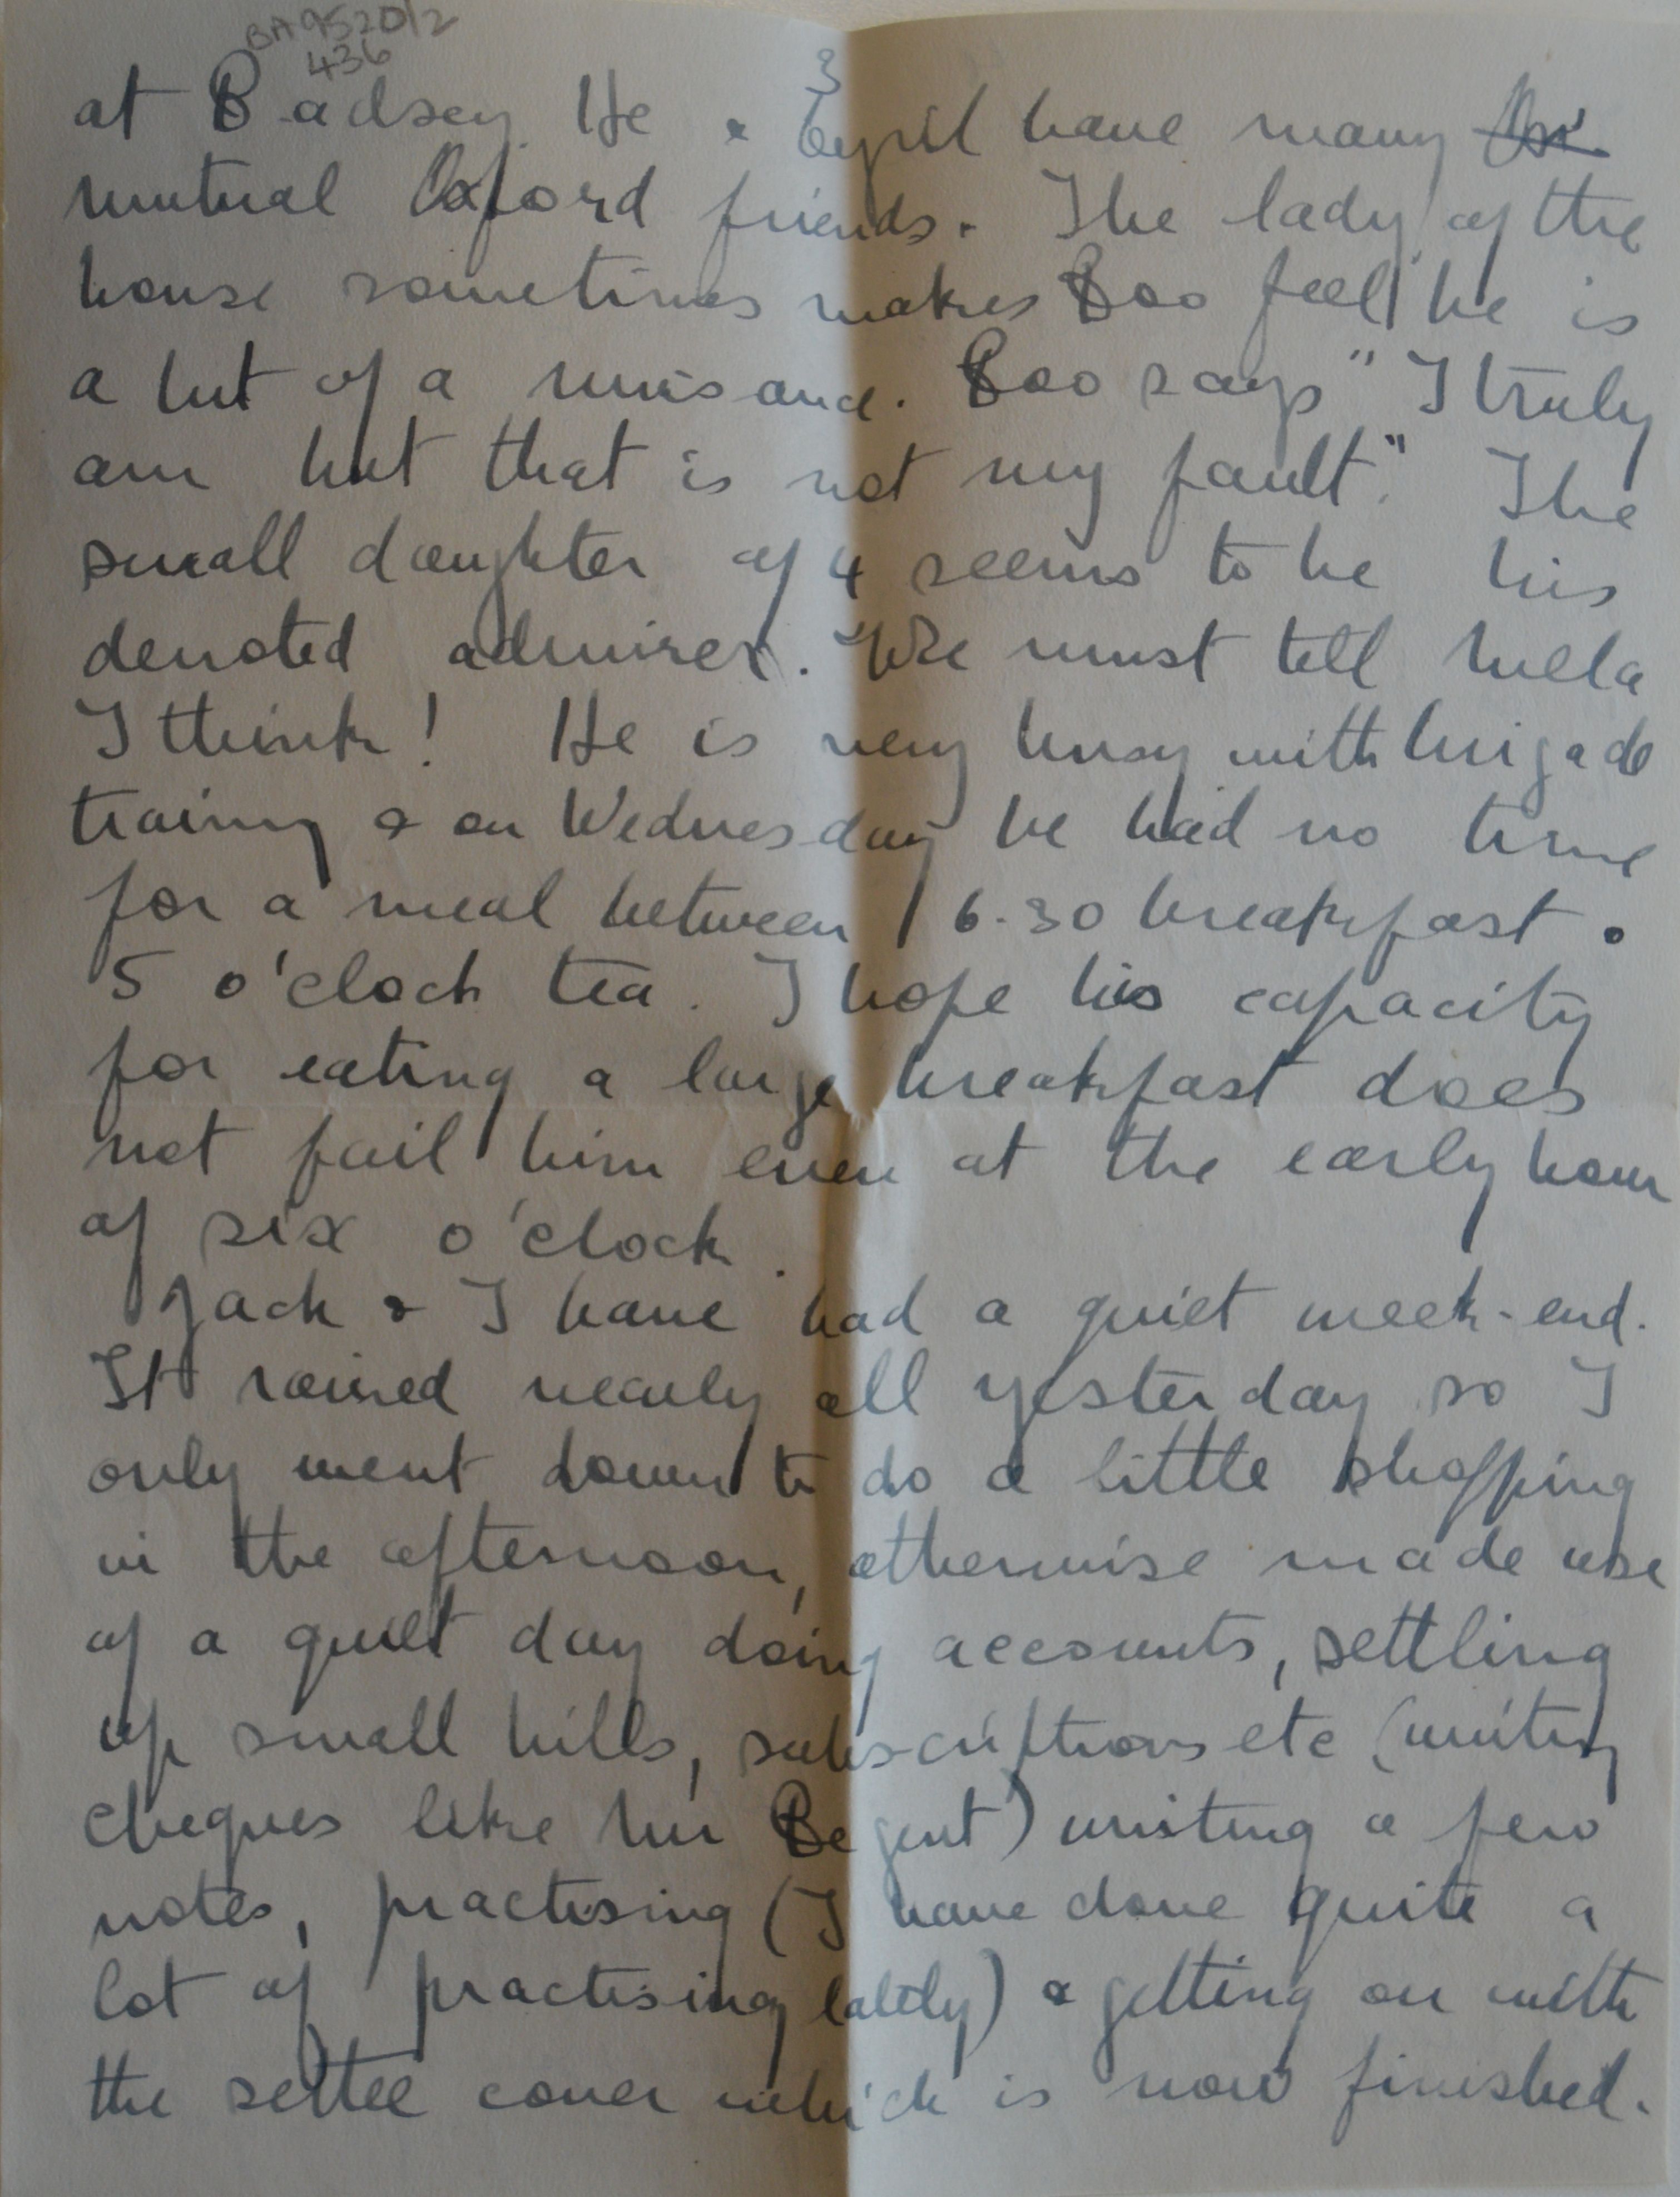 BA9520/2
436
3
at Badsey. He & Cyril have many
mutual Oxford friends. The lady of the
house sometimes makes Boo feel he is
a bit of a nuisance. Boo says "I truly
am but that is not my fault." The
small daughter of 4 seems to be his
devoted admirer. We must tell
I think! He is very busy with brigade
training & on Wednesday he had no time
for a meal between 6.30 breakfast &
5 o'clock tea. I hope his capacity
for eating a large breakfast does
not fail him even at the early hour
of six o'clock.
Jack & I have had a quiet week-end.
It rained nearly all yesterday so I
only went down to do a little shopping
in the afternoon, otherwise made use
of a quiet day doing accounts, settling
up small bills, subscriptions etc (writing
cheques like hur Begent) writing a few
notes, practising (I have done quite a
lot of practising lately) & getting on with
the settee cover which is now finished.